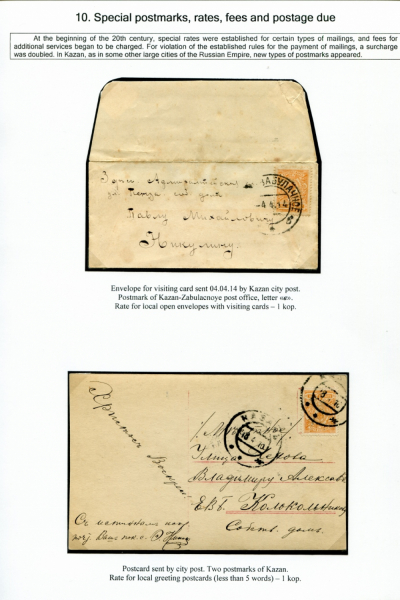 10. Special postmarks, rates, fees and postage due
At the beginning of the 20th century, special rates were established for certain types of mailings, and fees for
additional services began to be charged. For violation of the established rules for the payment of mailings, a surcharge
was doubled. In Kazan, as in some other large cities of the Russian Empire, new types of postmarks appeared.
Павлу Михайловичу
Никулину
Envelope for visiting card sent 04.04.14 by Kazan city post.
Postmark of Kazan-Zabulacnoye post office, letter «в».
Rate for local open envelopes with visiting cards – 1 kop.
Христосъ Воскресе
Улица
Владимиру Алексеев
ЕВБ.
Собств. домъ.
Postcard sent by city post. Two postmarks of Kazan.
Rate for local greeting postcards (less than 5 words) – 1 kop.